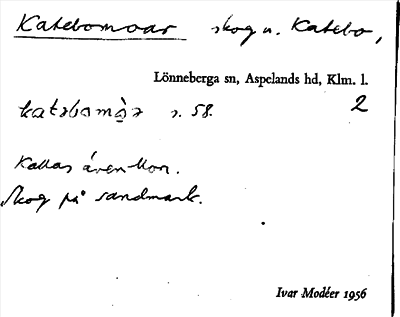 Katebomoar skog n. Katebo,
Lönneberga sn, Aspelands hd, Klm. l.
katəbomɑ̀r s. 58. 2
Kallas även Mon.
Skog på sandmark.
Ivar Modéer 1956